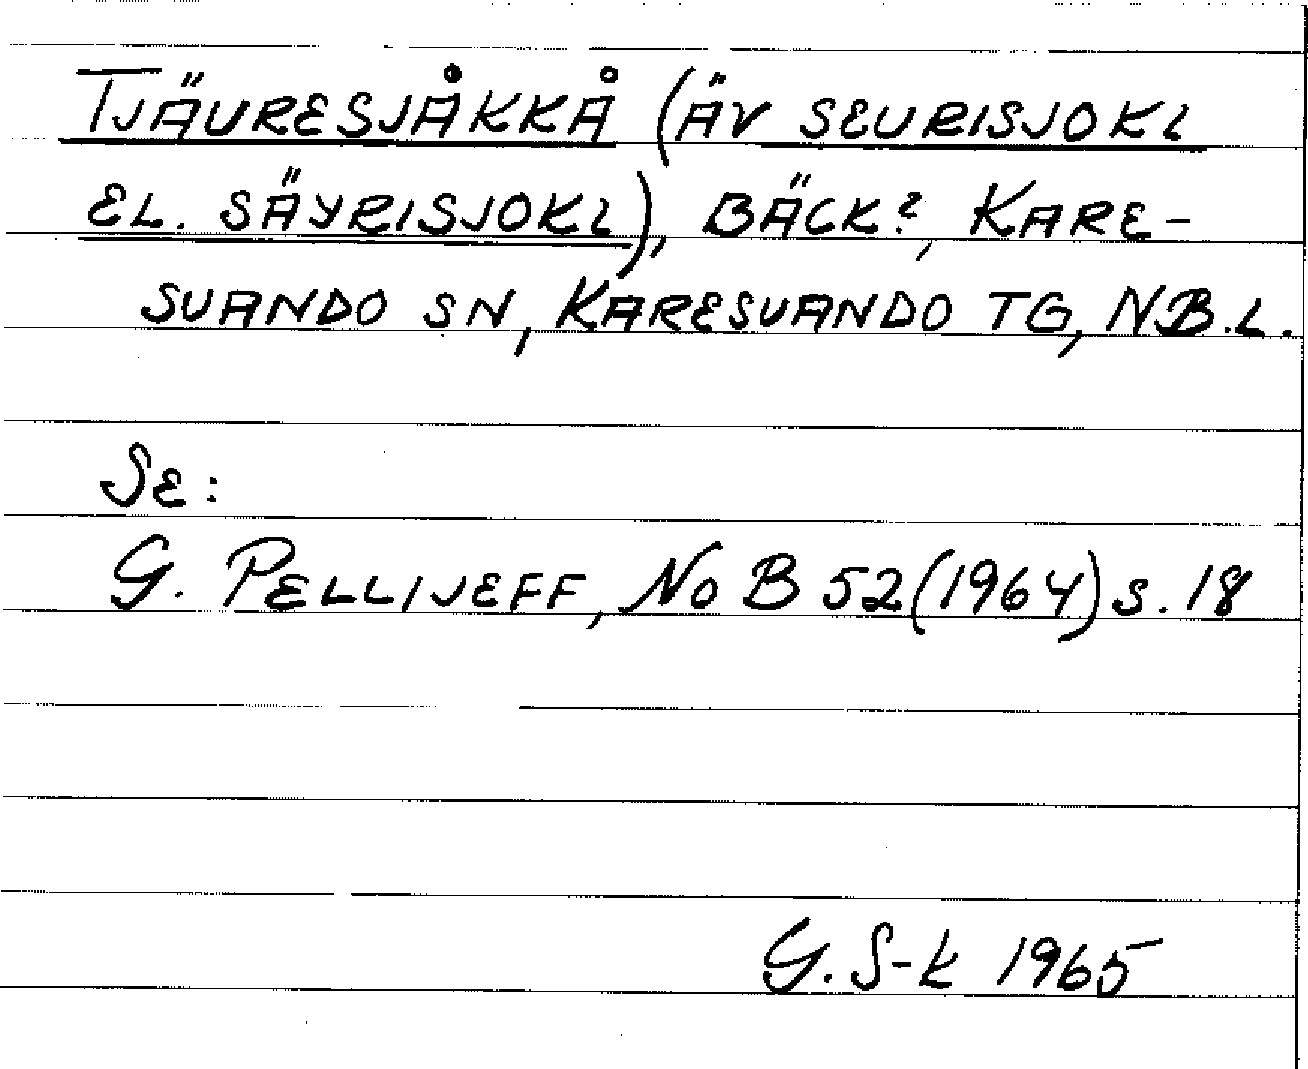 TJÄURESJÅKKÅ (ÄV SEURISJOKI
EL. SÄYRISJOKI), BÄCK?, KARE-
SUANDO SN, KARESUANDO TG, N.B.L.
SE:
G. PELLIJEFF, NoB 52 (1964) s. 18
G. S-k 1965